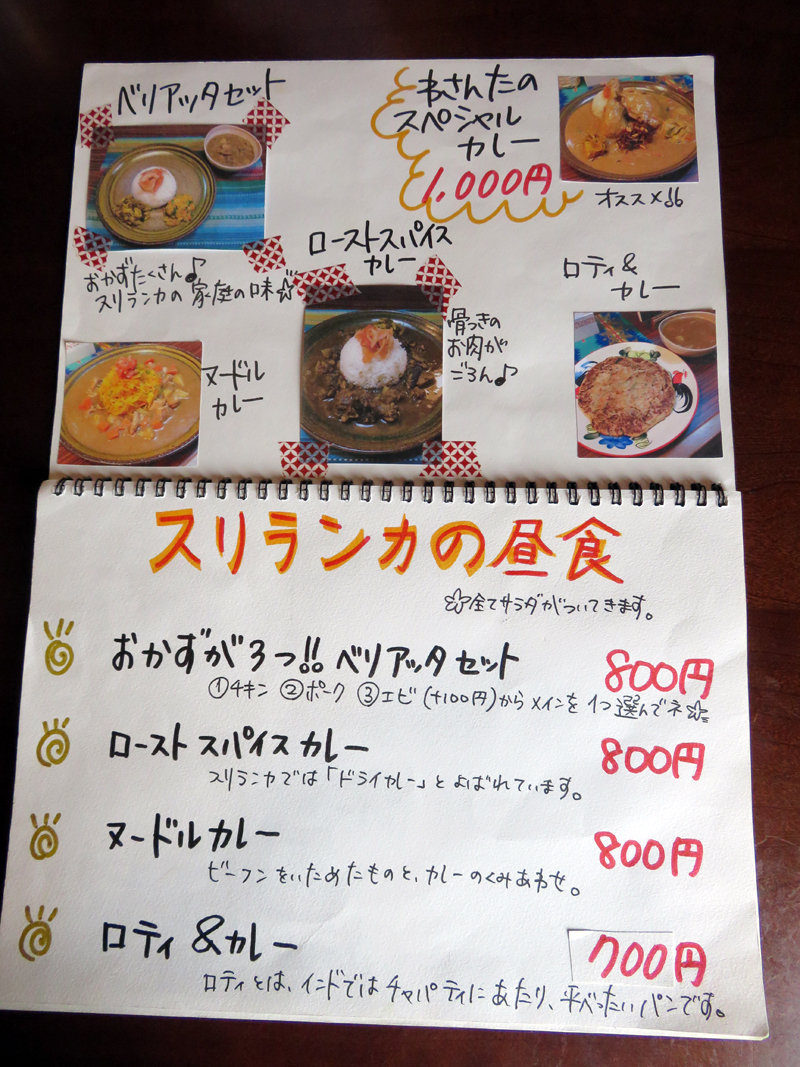 ベリアッタセット
わさんたの
スペシャル
カレー
1,000円
オススメ
おかずたくさん♪
スリランカの家庭の味☆
ローストスパイス
カレー
骨つきの
お肉が
ごろん♪
ロティ&
カレー
ヌードル
カレー
スリランカの昼食
☆全てサラダがついてきます。
おかずが3つ!! ベリアッタセット 800円
①チキン ②ポーク ③エビ(+100円)からメインを1つ選んでネ☆
ローストスパイスカレー 800円
スリランカでは「ドライカレー」とよばれています。
ヌードルカレー 800円
ビーフンをいためたものと、カレーのくみあわせ。
ロティ&カレー 700円
ロティとは、インドではチャパティにあたり、平べったいパンです。